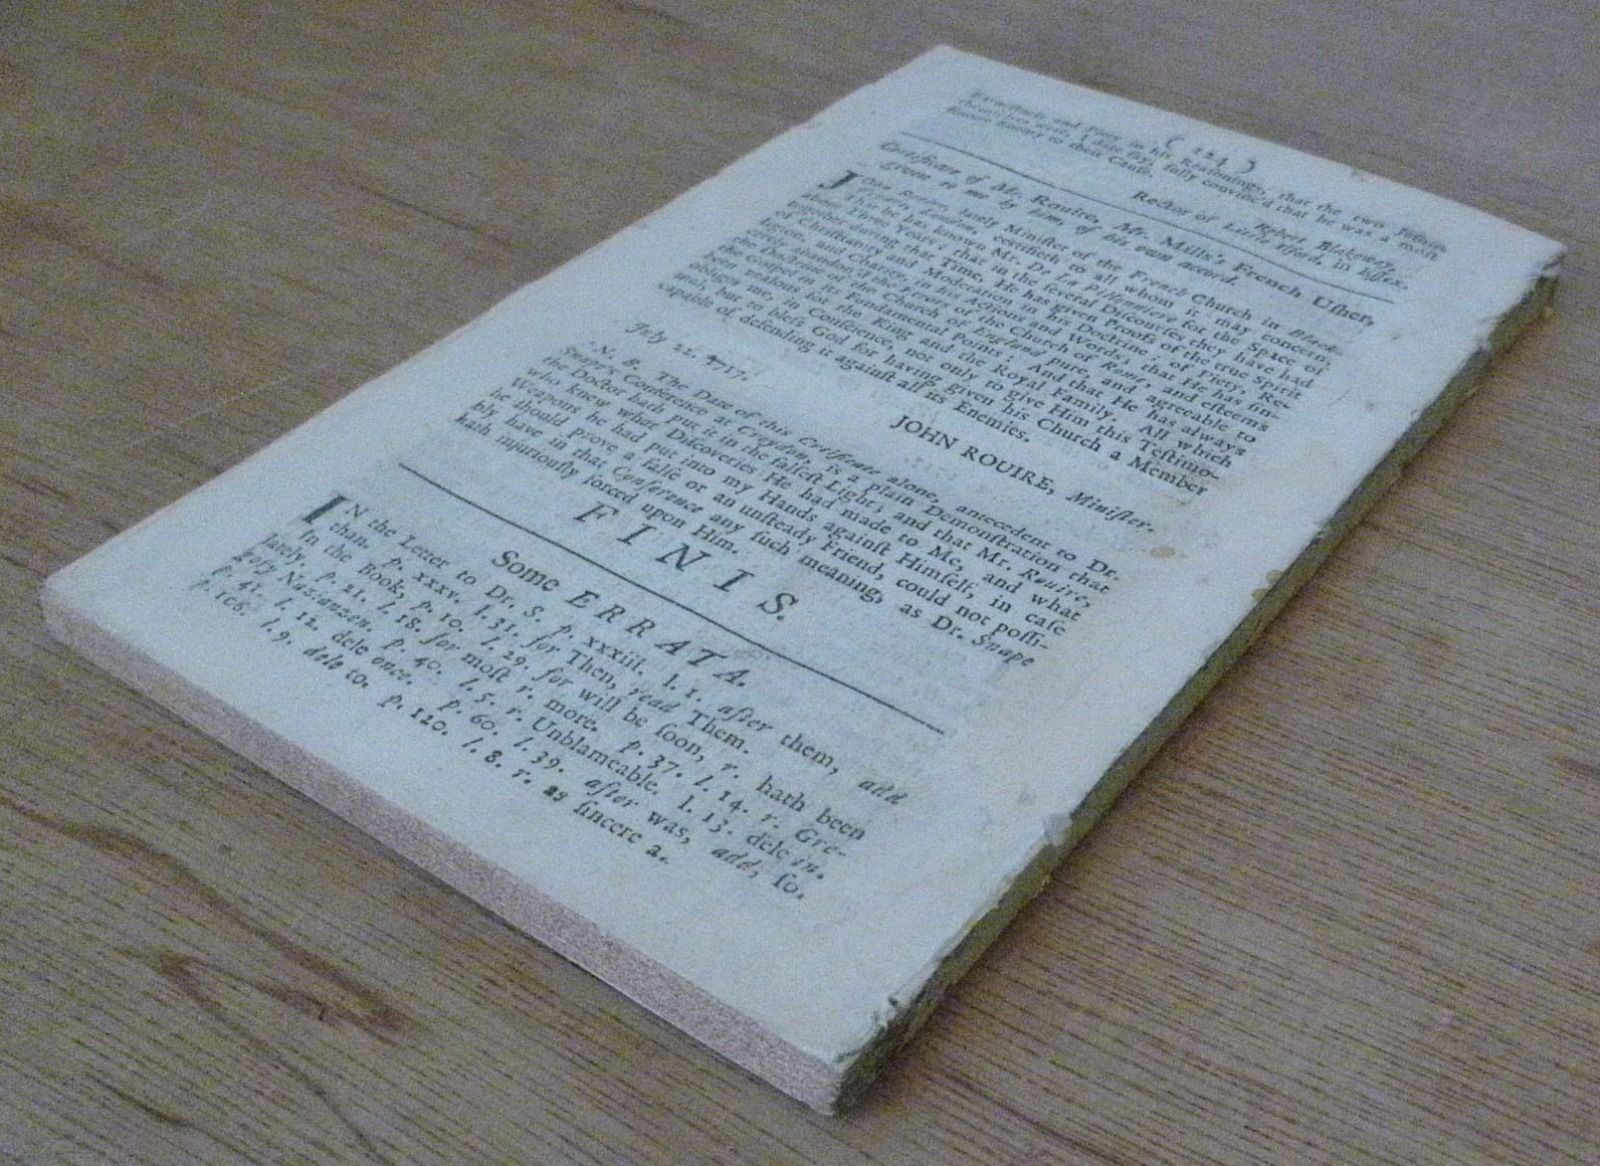 ( 124 )
Earnestness and Force in his Reasonings, that the two Jesuits
themselves were, I dare say, fully convinc'd that he was a most
sincere Enemy to their Cause.
Robert Blakeway,
Rector of Little Ilford, in Essex.
Certificate of Mr. Rouire, Mr. Mills's French Usher,
given to me by him, of his own accord.
JOhn Rouire, lately Minister of the French Church in Black-
Fryars, London, certifieth to all whom it may concern,
That he has known Mr. De La Pilloniere for the Space of
about Three Years; that in the several Discourses they have had
together, during that Time, He has given Proofs of the true Spirit
of Christianity and Moderation in his Doctrine; of Piety, Re-
ligion, and Charity, in his Actions and Words; that He has sin-
cerely abandon'd the Errors of the Church of Rome, and esteems
the Doctrine of the Church of England pure, and agreeable to
the Gospel in its Fundamental Points; And that He has always
been zealous for the King and the Royal Family. All which
obliges me, in Conscience, not only to give Him this Testimo-
nial, but to bless God for having given his Church a Member
capable of defending it against all its Enemies.
JOHN ROUIRE, Minister.
July 22. 1717.
N. B. The Date of this Certificate alone, antecedent to Dr.
Snape's Conference at Croydon, is a plain Demonstration that
the Doctor hath put it in the falsest Light; and that Mr. Rouire,
who knew what Discoveries He had made to Me, and what
Weapons he had put into my Hands against Himself, in case
he should prove a false or an unsteady Friend, could not possi-
bly have in that Conference any such meaning, as Dr. Snape
hath injuriously forced upon Him.
FINIS.
Some ERRATA.
IN the Letter to Dr. S. p. xxxiii. l. 1. after them, add
than. p. xxxv. l. 31. for Then, read Them.
In the Book, p. 10. l. 29. for will be soon, r. hath been
lately. p. 21. l. 18. for most r. more. p. 37. l. 14. r. Gre-
gory Nazianzen. p. 40. l. 5. r. Unblameable. l. 13. dele in.
p. 41. l. 12. dele once. p. 60. l. 39. after was, add, so.
p. 106. l. 9. dele to. p. 120. l. 8. r. as sincere a.